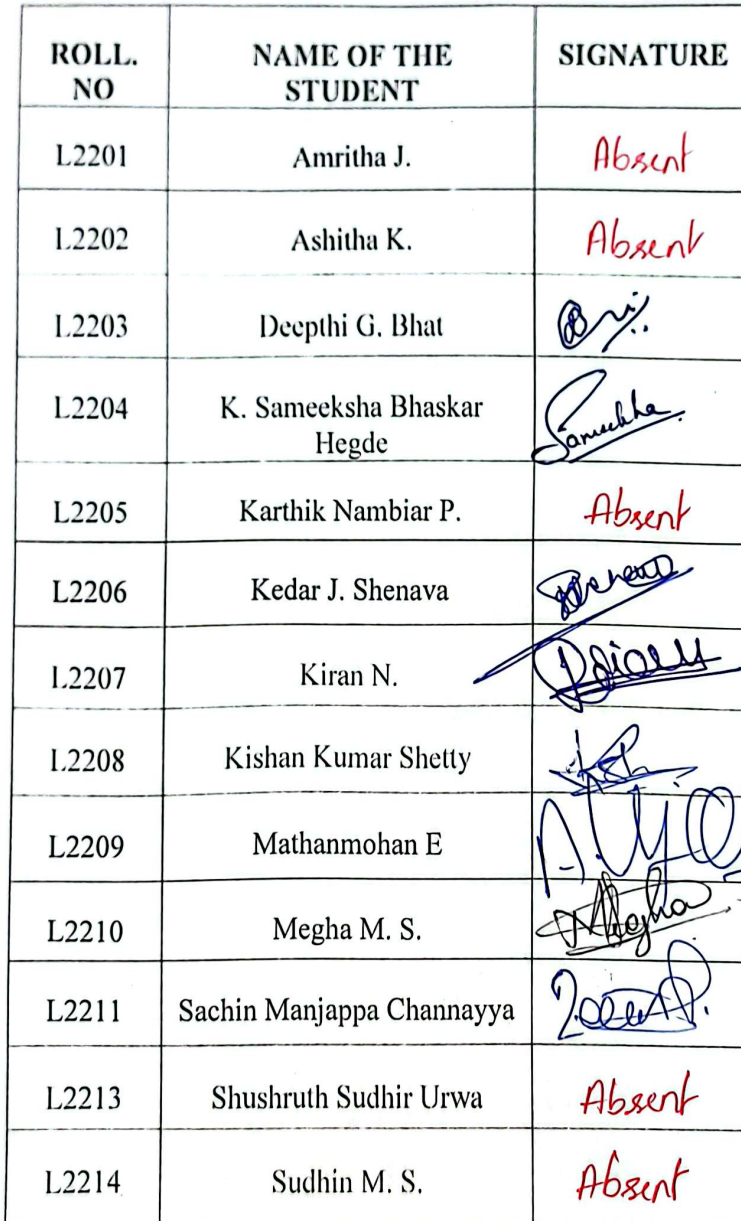 ROLL. NO
NAME OF THE STUDENT
SIGNATURE
L2201 Amritha J. Absent
L2202 Ashitha K. Absent
L2203 Deepthi G. Bhat
L2204 K. Sameeksha Bhaskar Hegde
L2205 Karthik Nambiar P. Absent
L2206 Kedar J. Shenava
L2207 Kiran N.
L2208 Kishan Kumar Shetty
L2209 Mathanmohan E
L2210 Megha M. S. Megha
L2211 Sachin Manjappa Channayya
L2213 Shushruth Sudhir Urwa Absent
L2214 Sudhin M. S. Absent